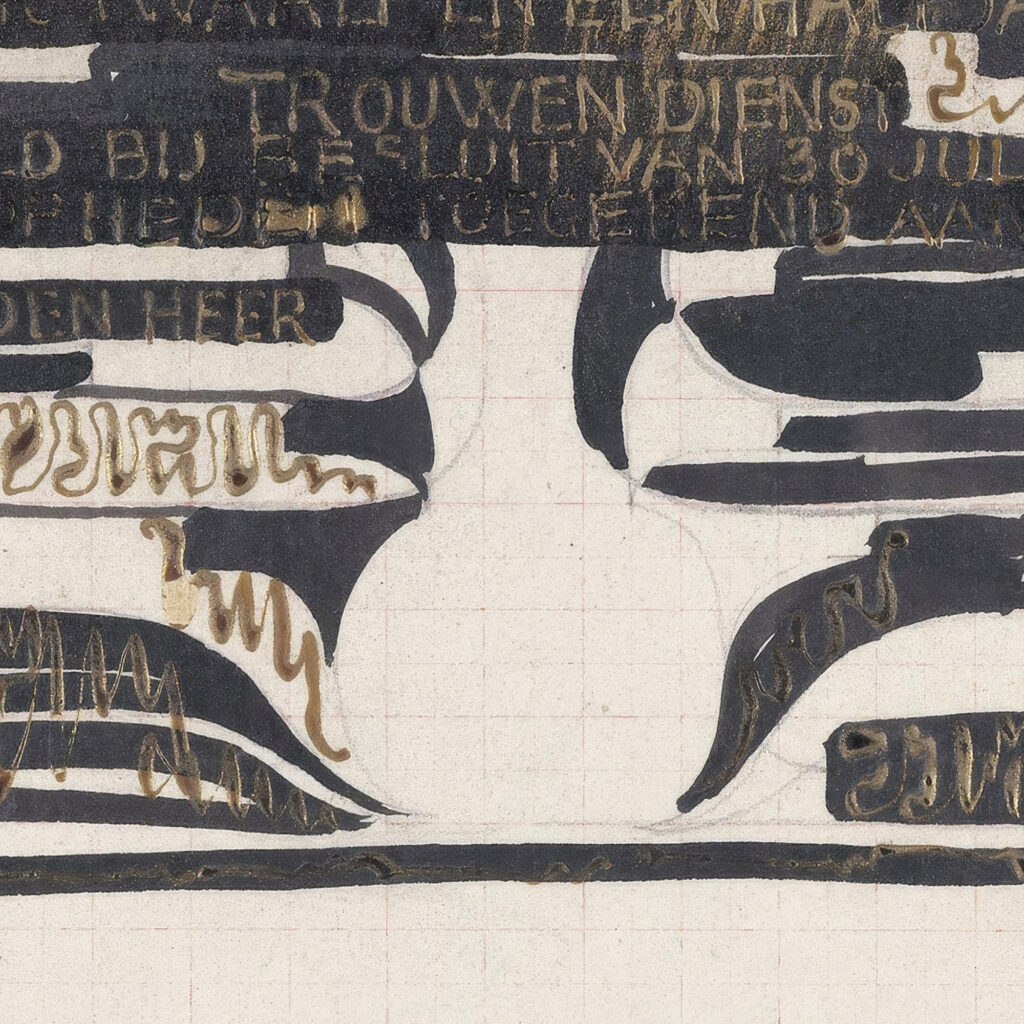 KWART EN EEN HALF
TROUWEN DIENST
LD BIJ BESLUIT VAN 30 JUL
OFHEDEN TOEGEKEND AAN
DEN HEER